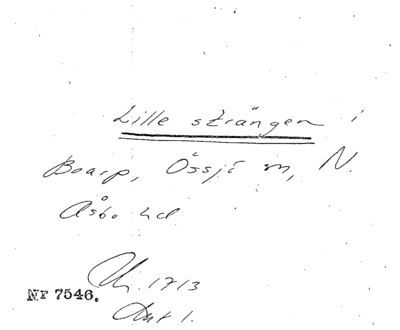 Lille strängen i
Boarp, Össjö sn, N.
Åsbo hd.
1713
NF 7546.
Akt 1.